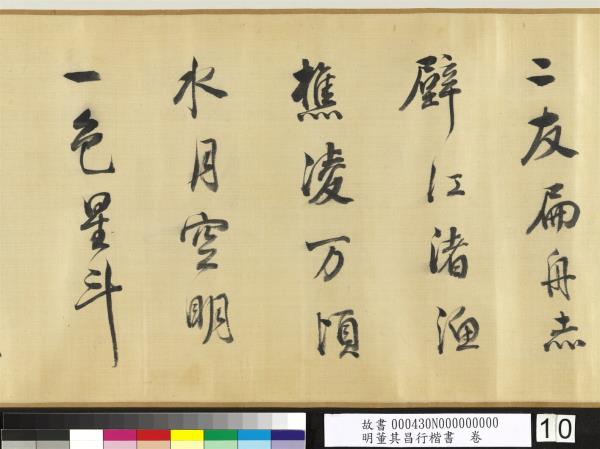 二友扁舟赤
壁江渚漁
樵凌万頃
水月空明
一色星斗
故書 000430N000000000
明董其昌行楷書　卷
10